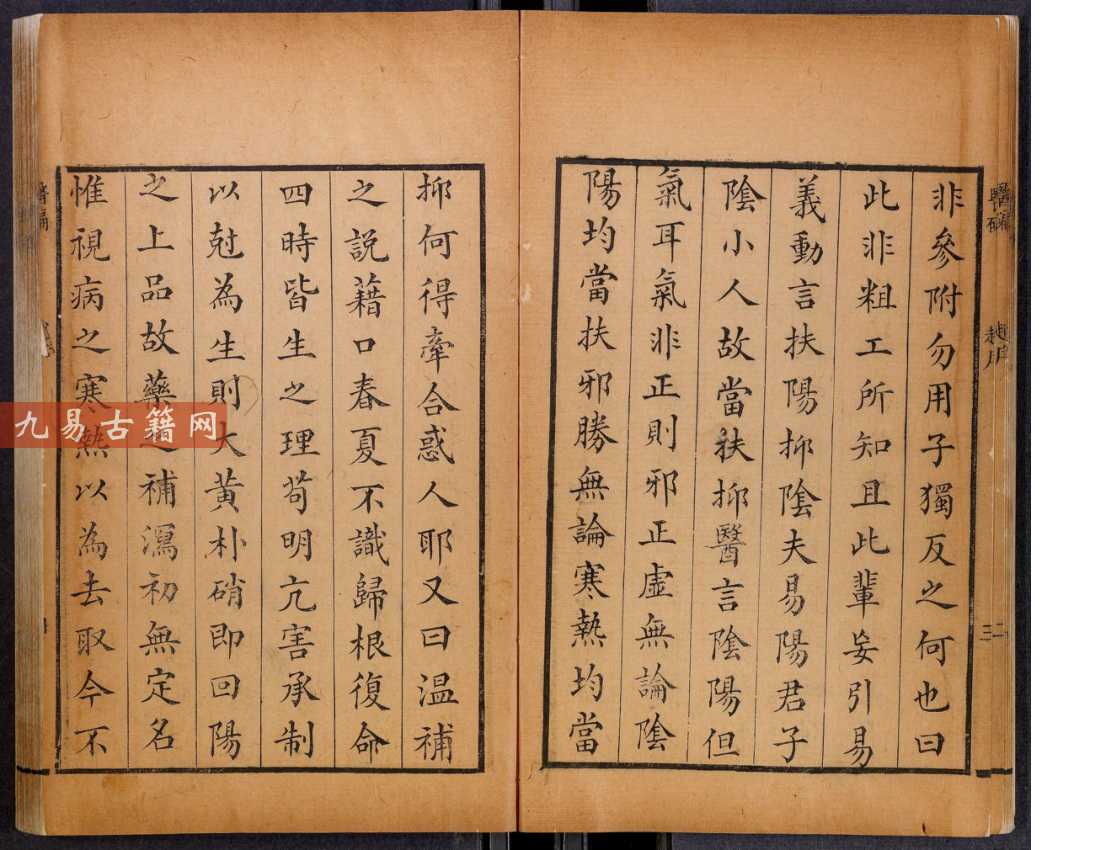 非參附勿用子獨反之何也曰
此非粗工所知且此輩妄引易
義動言扶陽抑陰夫易陽君子
陰小人故當扶抑醫言陰陽但
氣耳氣非正則邪正虛無論陰
陽均當扶邪勝無論寒熱均當
抑何得牽合惑人耶又曰温補
之説藉口春夏不識歸根復命
四時皆生之理苟明亢害承制
以尅為生則大黃朴硝即回陽
之上品故藥之補瀉初無定名
惟視病之寒熱以為去取今不
醫碥
趙序
九易古籍网